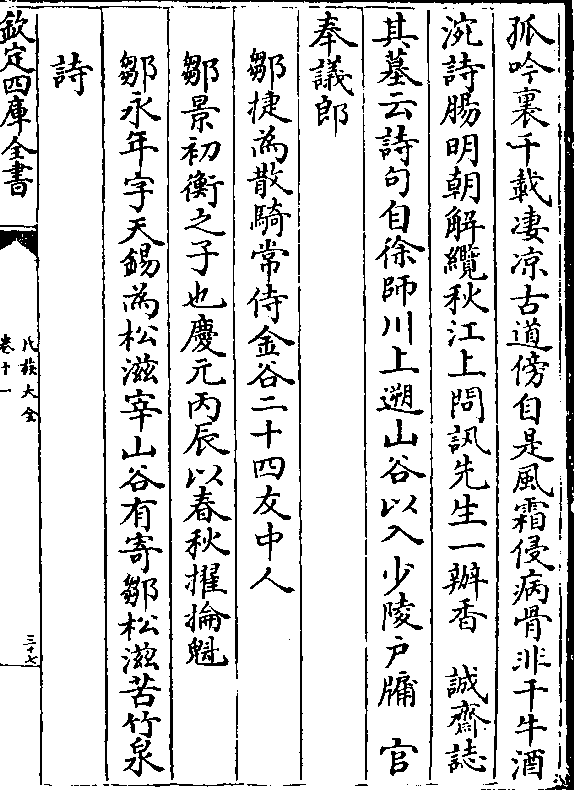 孤吟裏千載凄凉古道傍自是風霜侵病骨非干牛酒
涴詩腸明朝解纜秋江上問訊先生一瓣香 誠齋誌
其墓云詩句自徐師川上遡山谷以入少陵户牖 官
奉議郎
鄒捷為散騎常侍金谷二十四友中人
鄒景初衡之子也慶元丙辰以春秋擢掄魁
鄒永年字天錫為松滋宰山谷有寄鄒松滋苦竹泉
詩
欽定四庫全書
氏族大全
卷十一
三十七